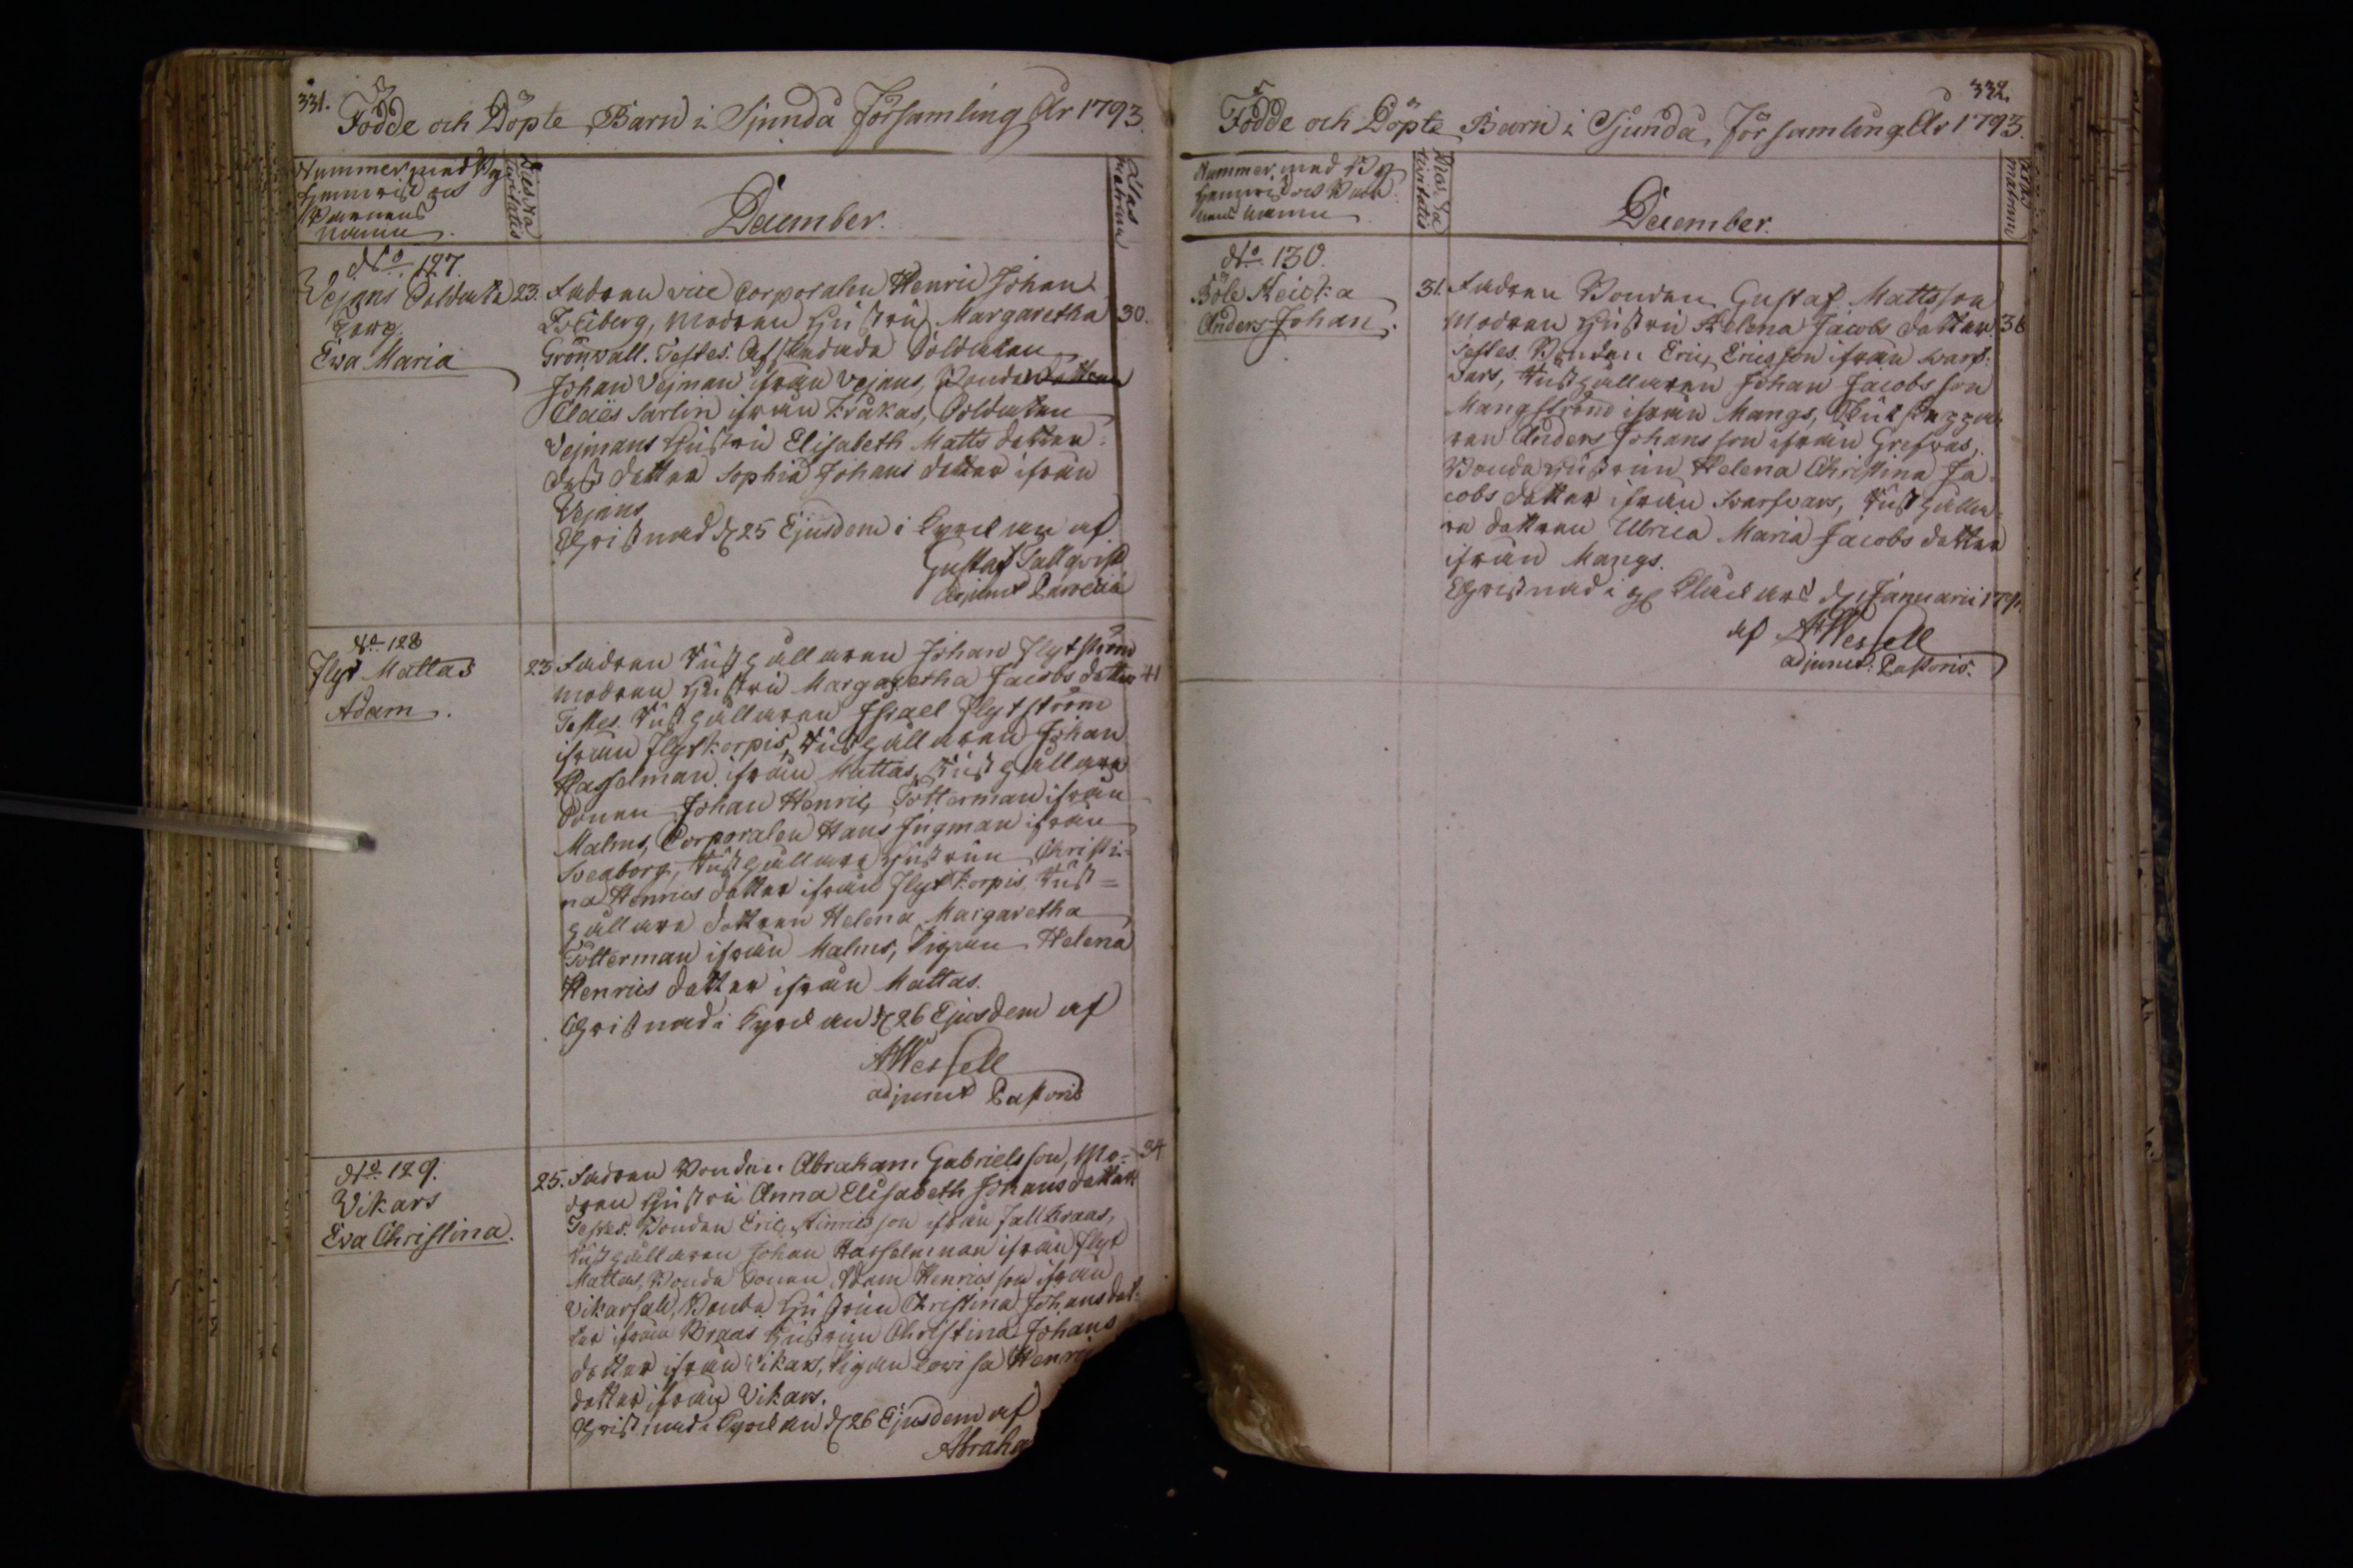 331.
Födde och Döpte Barn i Sjundå Församling År 1793.
Nummer med By
Hemvist och
Barnens
namn.
Dies Na
tivitatis
December.
Ætas
matrum
No. 127.
Vejans Soldate
torp.
Ewa Maria
23. Fadren vice Corporalen Henric Johan
Lovisberg, modren Hustru Margaretha 30.
Grönvall. Testes. Afskedade Soldaten
Johan Vejman ifrån Vejans, Bonde
Claës Sarlin ifrån Kråkas, Soldaten
Vejmans Hustru Elisabeth Matts dotter
dess dotter Sophia Johans dotter ifrån
Vejans
Christnad d 25 Ejusdem i Kyrckan af
Gustaf Tallqvist
Adjunct Paroeciæ
No. 128
Flyt Mattas
Adam.
23 Fadren Rusthållaren Johan Flytström
modren Hustru Margaretha Jacobs dotter 41
Testes. Rusthållaren Israel Flytström
ifrån Flytkorpis, Rusthållaren Johan
Hasselman ifrån Mattas, Rusthållare
Sonen Johan Henric Tötterman ifrån
Malms, Corporalen Hans Jugman ifrån
Sveaborg, Rusthållare Hustrun Christi=
na Henrics dotter ifrån Flyt korpis, Rust=
hållare dottren Helena Margaretha
Tötterman ifrån Malms, Pigan Helena
Henrics dotter ifrån Mattas.
Christnad i Kyrckan d 26 Ejusdem af
AWessell
adjunct Pastoris
No. 129.
Vikars
Eva Christina.
25. Fadren Bonden Abraham Gabrielsson, Mo= 34
dren Hustru Anna Elisabeth Johans dotter.
Testes. Bonden Eric Hinricsson ifrån Fallbraas,
Rusthållaren Johan Hasselman ifrån Flyt
Mattas, Bonde Sonen Adam Henricsson ifrån
Vikars, Bonde Hustrun Christina Johans dot=
ter ifrån Braas Hustrun Christina Johans
dotter ifrån Vikars, Pigan Lovisa Henri
dotter ifrån Vikars.
Christnad i Kyrckan d 26 Ejusdem af
Abraha
332.
Födde och Döpte Barn i Sjundå Församling År 1793.
Nummer med By
Hemvist och Bar
nens namn
Dies Na
tivitatis
December.
Ætas
matrum
No. 130.
Böle Keicka
Anders Johan.
31. Fadren Bonden Gustaf Mattsson
Modren Hustru Helena Jacobs dotter 36
Testes. Bonden Eric Ericsson ifrån Svarf=
vars, Rusthållaren Johan Jacobsson
Mangström ifrån Mangs,
ren Anders Johansson ifrån Grefvas,
Bonde Hustrun Helena Christina Ja=
cobs dotter ifrån Svarfvars, Rusthålla=
re dottren Ulrica Maria Jacobs dotter
ifrån Mangs.
Christnad i Kluckars d 1 Januarii 1794.
af AWessell
adjunct: Pastoris.